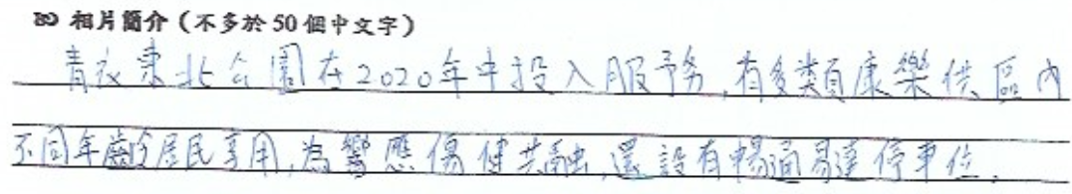 相片簡介（不多於50個中文字）
青衣東北公園在2020年中投入服務,有多類康樂供區內
不同年齡居民享用,為響應傷健共融,還設有暢通易達停車位。